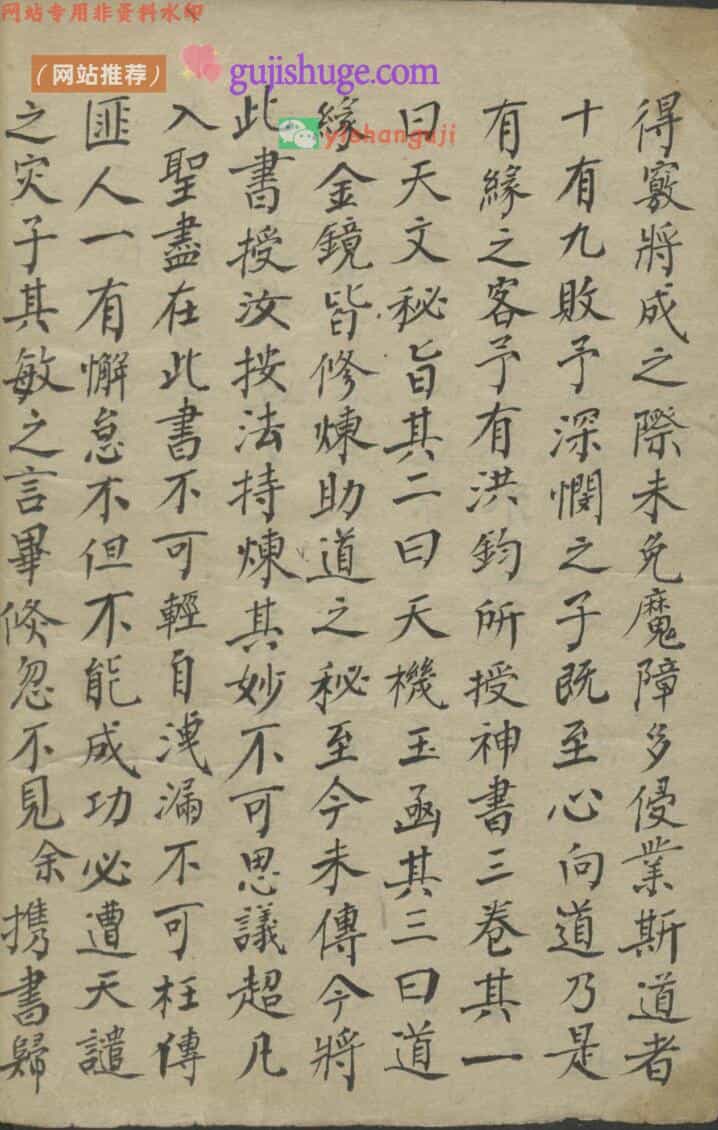 网站专用非资料水印
（网站推荐）
gujishuge.com
yishanguji
得竅將成之際未免魔障多侵業斯道者
十有九敗予深憫之子既至心向道乃是
有緣之客予有洪鈞所授神書三卷其一
曰天文秘旨其二曰天機玉函其三曰道
緣金鏡皆修煉助道之秘至今未傳今將
此書授汝按法持煉其妙不可思議超凡
入聖盡在此書不可輕自洩漏不可枉傳
匪人一有懈怠不但不能成功必遭天譴
之灾子其敏之言畢倏忽不見余携書歸